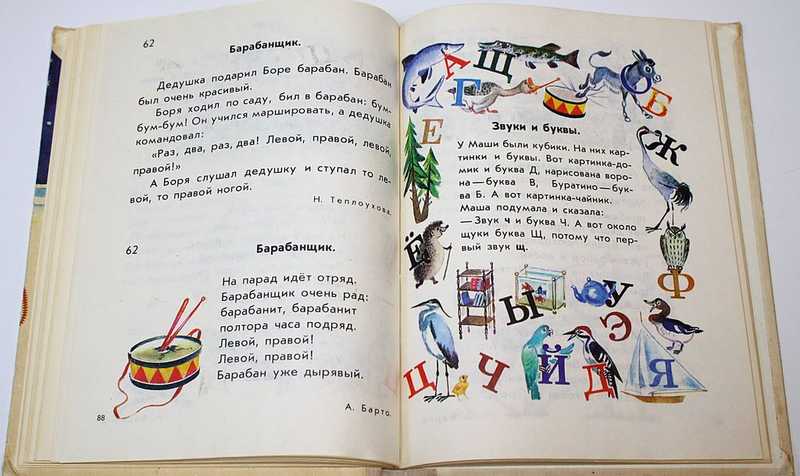 62
Барабанщик.
Дедушка подарил Боре барабан. Барабан
был очень красивый.
Боря ходил по саду, бил в барабан: бум-
бум-бум! Он учился маршировать, а дедушка
командовал:
«Раз, два, раз, два! Левой, правой, левой,
правой!»
А Боря слушал дедушку и ступал то ле-
вой, то правой ногой.
Н. Теплоухова.
62
Барабанщик.
На парад идёт отряд.
Барабанщик очень рад:
барабанит, барабанит
полтора часа подряд.
Левой, правой!
Левой, правой!
Барабан уже дырявый.
А. Барто.
88
А Щ
Г Б
Е Ж
Звуки и буквы.
У Маши были кубики. На них кар-
тинки и буквы. Вот картинка-до-
мик и буква Д, нарисована воро-
на — буква В, Буратино — бук-
ва Б. А вот картинка-чайник.
Маша подумала и сказала:
— Звук ч и буква Ч. А вот около
щуки буква Щ, потому что пер-
вый звук щ.
Ё Ф
Ы У
Э
Ц Ч Й Д Я